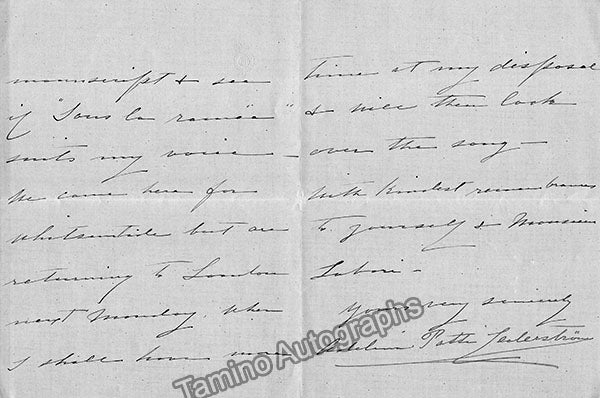 manuscript & see
if "Sous la ramée"
suits my voice —
We came here for
Whitsuntide but are
returning to London
next Monday. When
I shall have more
time at my disposal
& will then look
over the song —
With kindest remembrances
to yourself & Monsieur
Labori —
Yours very sincerely
Adelina Patti Cederström
Tamino Autographs